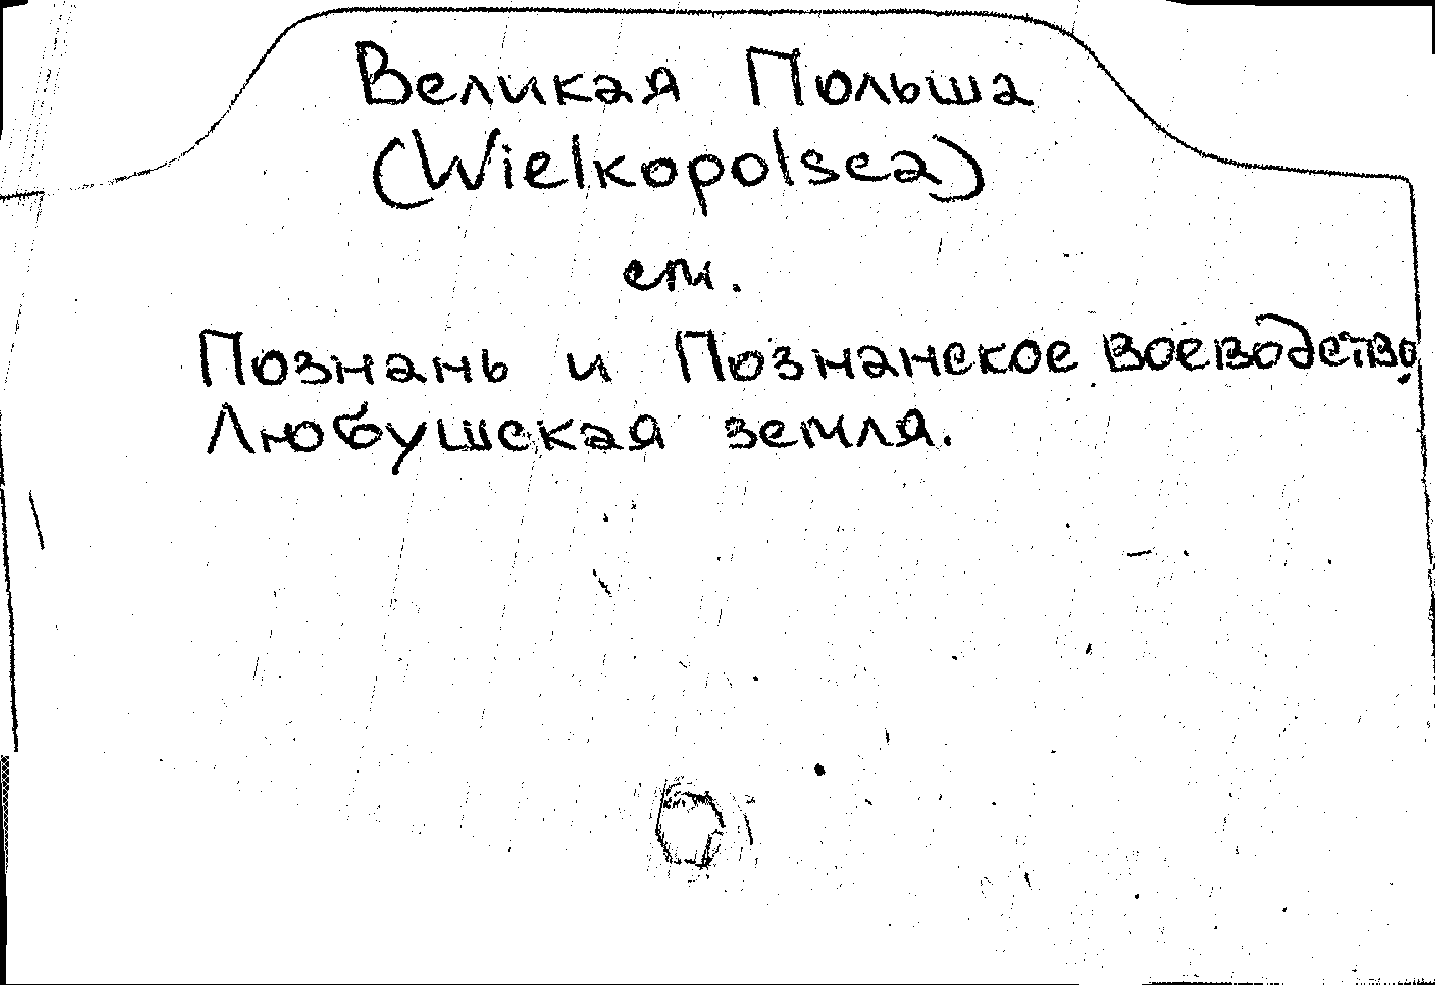 Великая Польша
(Wielkopolsca)
см.
Познань и Познанское воеводство,
Любушская земля.